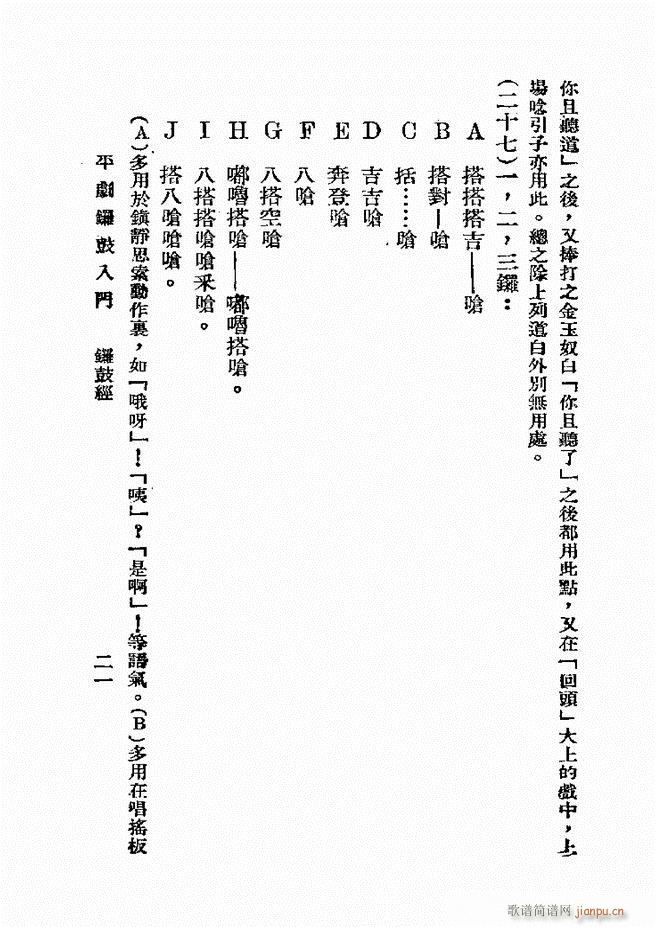 你且聽道」之後,又捧打之金玉奴白「你且聽了」之後都用此點,又在「回頭」大上的戲中,上
場唸引子亦用此。總之除上列道白外別無用處。
(二十七)一,二,三鑼:
A 搭搭搭吉——嗆
B 搭對—嗆
C 括……嗆
D 吉吉嗆
E 奔登嗆
F 八嗆
G 八搭空嗆
H 嘟嚕搭嗆——嘟嚕搭嗆。
I 八搭搭嗆嗆釆嗆。
J 搭八嗆嗆嗆。
(A)多用於鎮靜思索動作裏,如「哦呀」!「咦」?「是啊」!等語氣。(B)多用在唱搖板
平劇鑼鼓入門 鑼鼓經 二一
歌谱简谱网 jianpu.cn